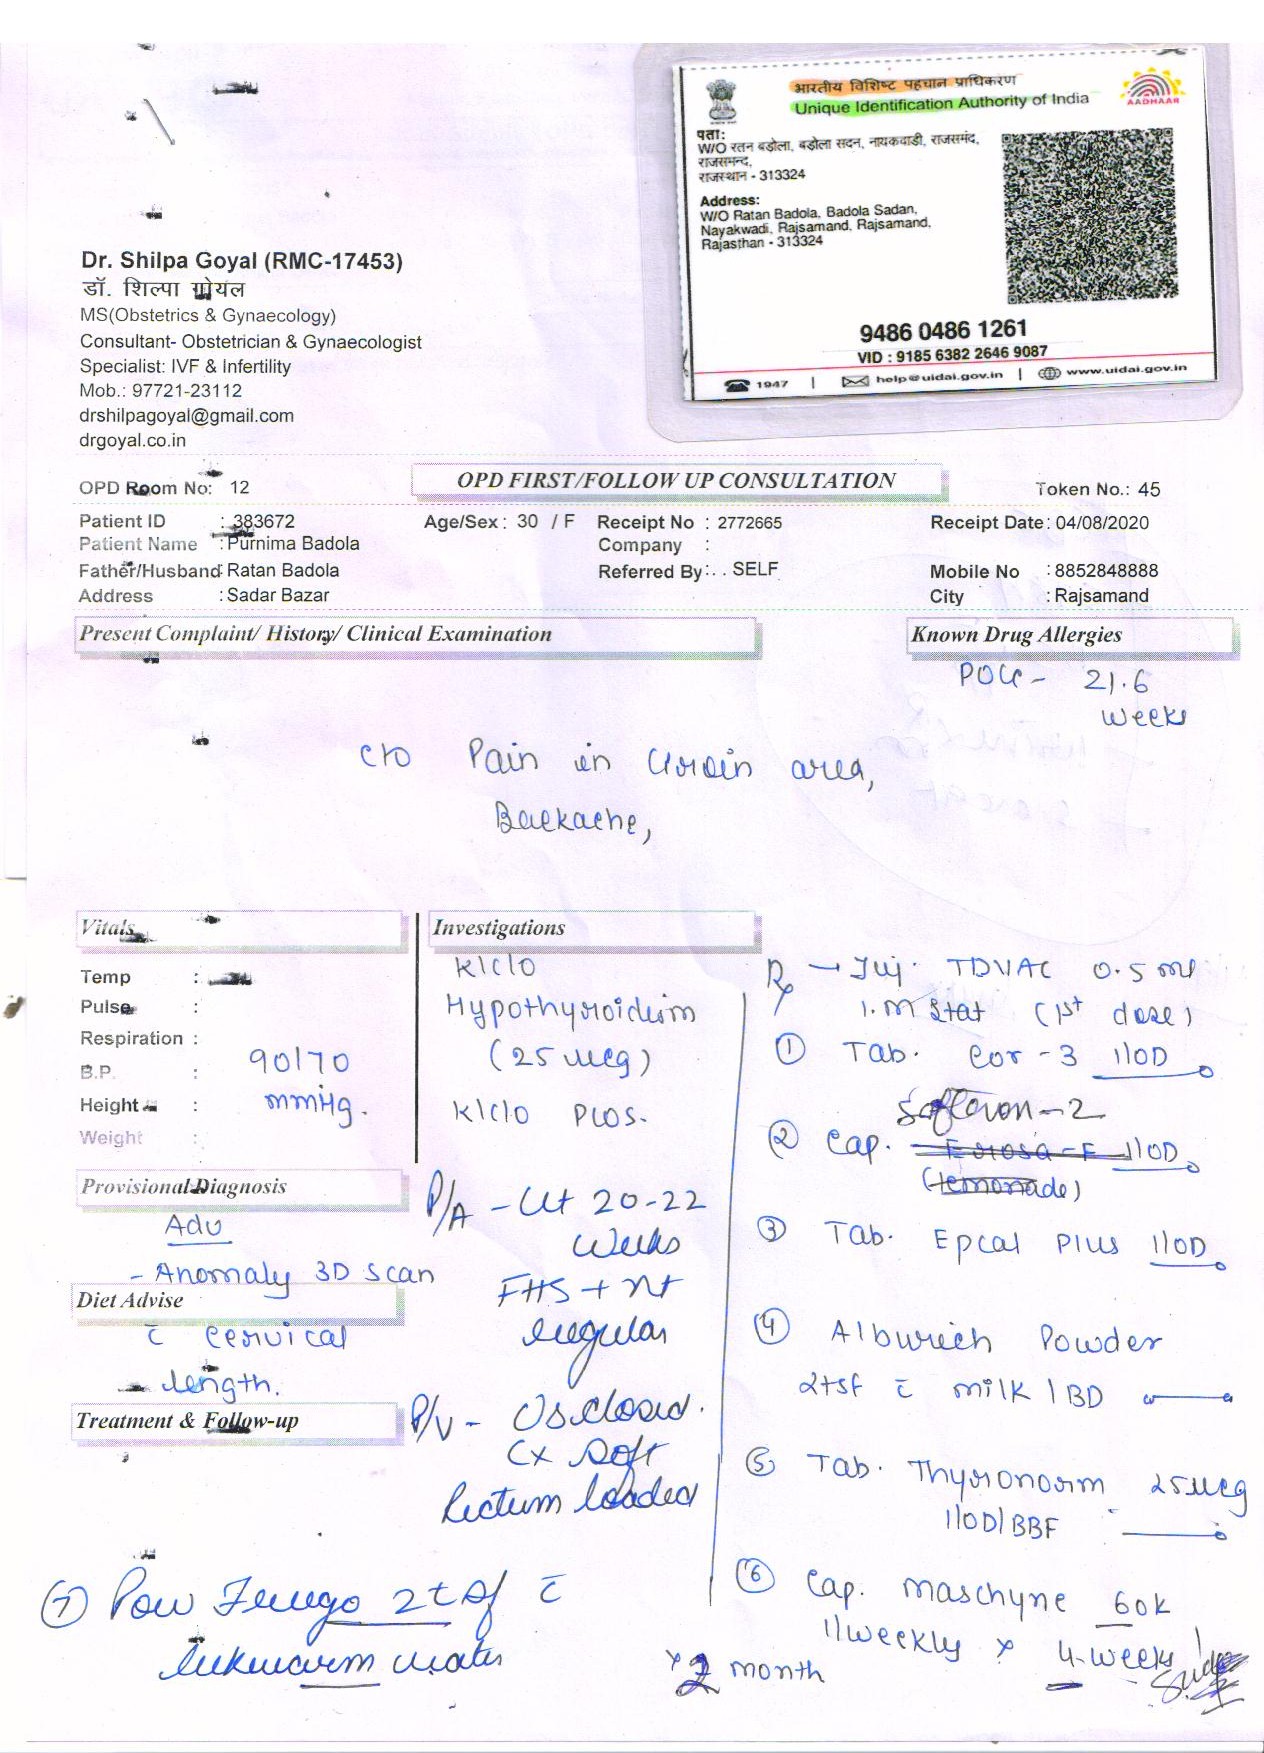 भारतीय विशिष्ट पहचान प्राधिकरण
Unique Identification Authority of India
AADHAAR
पता:
W/O रतन बडोला, बडोला सदन, नायकवाडी, राजसमंद,
राजसमन्द,
राजस्थान - 313324
Address:
W/O Ratan Badola, Badola Sadan,
Nayakwadi, Rajsamand, Rajsamand,
Rajasthan - 313324
9486 0486 1261
VID : 9185 6382 2646 9087
1947 | help@uidai.gov.in | www.uidai.gov.in
Dr. Shilpa Goyal (RMC-17453)
डॉ. शिल्पा गोयल
MS(Obstetrics & Gynaecology)
Consultant- Obstetrician & Gynaecologist
Specialist: IVF & Infertility
Mob.: 97721-23112
drshilpagoyal@gmail.com
drgoyal.co.in
OPD Room No: 12
OPD FIRST/FOLLOW UP CONSULTATION
Token No.: 45
Patient ID : 383672 Age/Sex : 30 / F Receipt No : 2772665 Receipt Date: 04/08/2020
Patient Name : Purnima Badola Company :
Father/Husband: Ratan Badola Referred By: . . SELF Mobile No : 8852848888
Address : Sadar Bazar City : Rajsamand
Present Complaint/ History/ Clinical Examination
Known Drug Allergies
POG - 21.6
weeks
c/o Pain in Groin area,
Backache,
Vitals
Temp :
Pulse :
Respiration :
B.P. : 90/70
mmHg.
Height :
Weight :
Provisional Diagnosis
Adv
- Anomaly 3D scan
Diet Advise
c̄ cervical
length.
Treatment & Follow-up
Investigations
K/C/O
Hypothyroidism
(25 mcg)
K/C/O PCOS.
P/A - Ut 20-22
weeks
FHS + nt
regular
P/V - Os closed.
Cx soft
Rectum loaded
Rx → Inj. TDVAC 0.5 ml
I.M Stat (1st dose)
① Tab. Cor-3 1/OD
Softeron-2
② Cap. 1/OD
③ Tab. Epcal Plus 1/OD
④ Albwrich Powder
2tsf c̄ milk / BD
⑤ Tab. Thyronorm 25mcg
1/OD/BBF
⑥ Cap. maschyne 60k
1/weekly x 4-weeks
⑦ Pow 2tsf c̄
lukewarm water
x 2 month